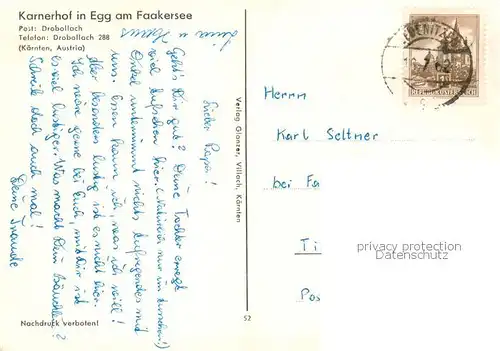 Karnerhof in Egg am Faakersee
Post: Drobollach
Telefon: Drobollach 288
(Kärnten, Austria)
Lieber Papa!
Geht's Dir gut? Deine Tochter erregt
viel Aufsehen hier. (Natürlich nur im
Onkel unternimmt nichts Aufregendes mit
uns. Essen kann ich, was ich will!
Aber besonders lustig ist es nicht hier.
Ich wäre gerne bei Euch, mit Dir ist
es viel lustiger. Was macht Dein
Schreib doch auch mal!
Deine Traude
Nachdruck verboten!
Verlag Glanzer, Villach, Kärnten
52
REPUBLIK ÖSTERREICH
Herrn
Karl Seltner
bei Fa
Ti
Pos
privacy protection
DATENSCHUTZ